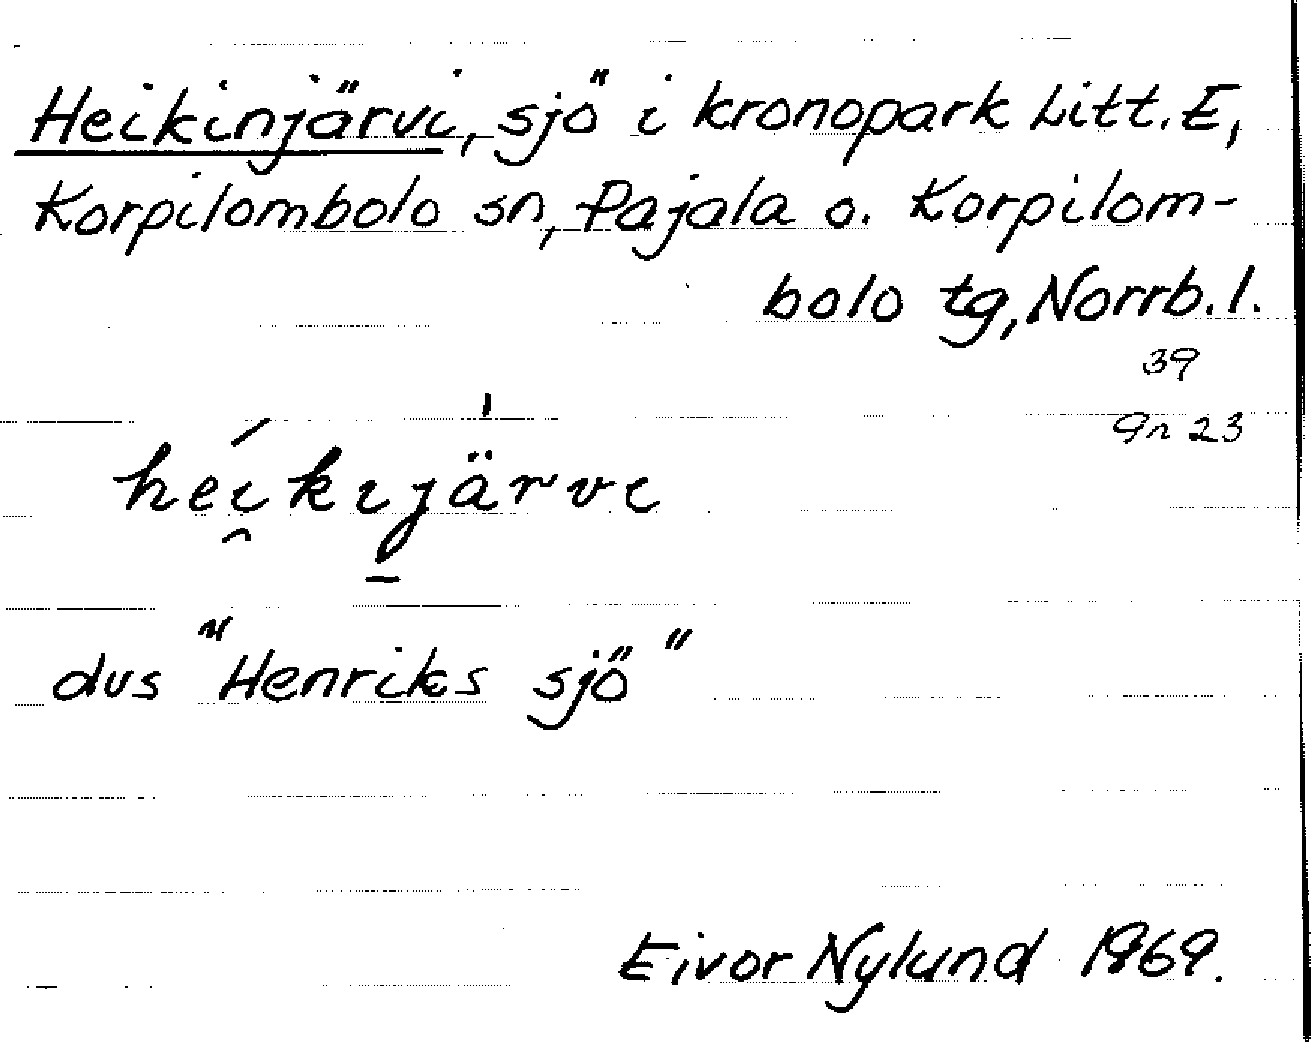 Heikinjärvi, sjö i kronopark Litt. E,
Korpilombolo sn, Pajala o. Korpilom-
bolo tg, Norrb. l.
39
9n 23
heikijärvi
dvs "Henriks sjö"
Eivor Nylund 1969.